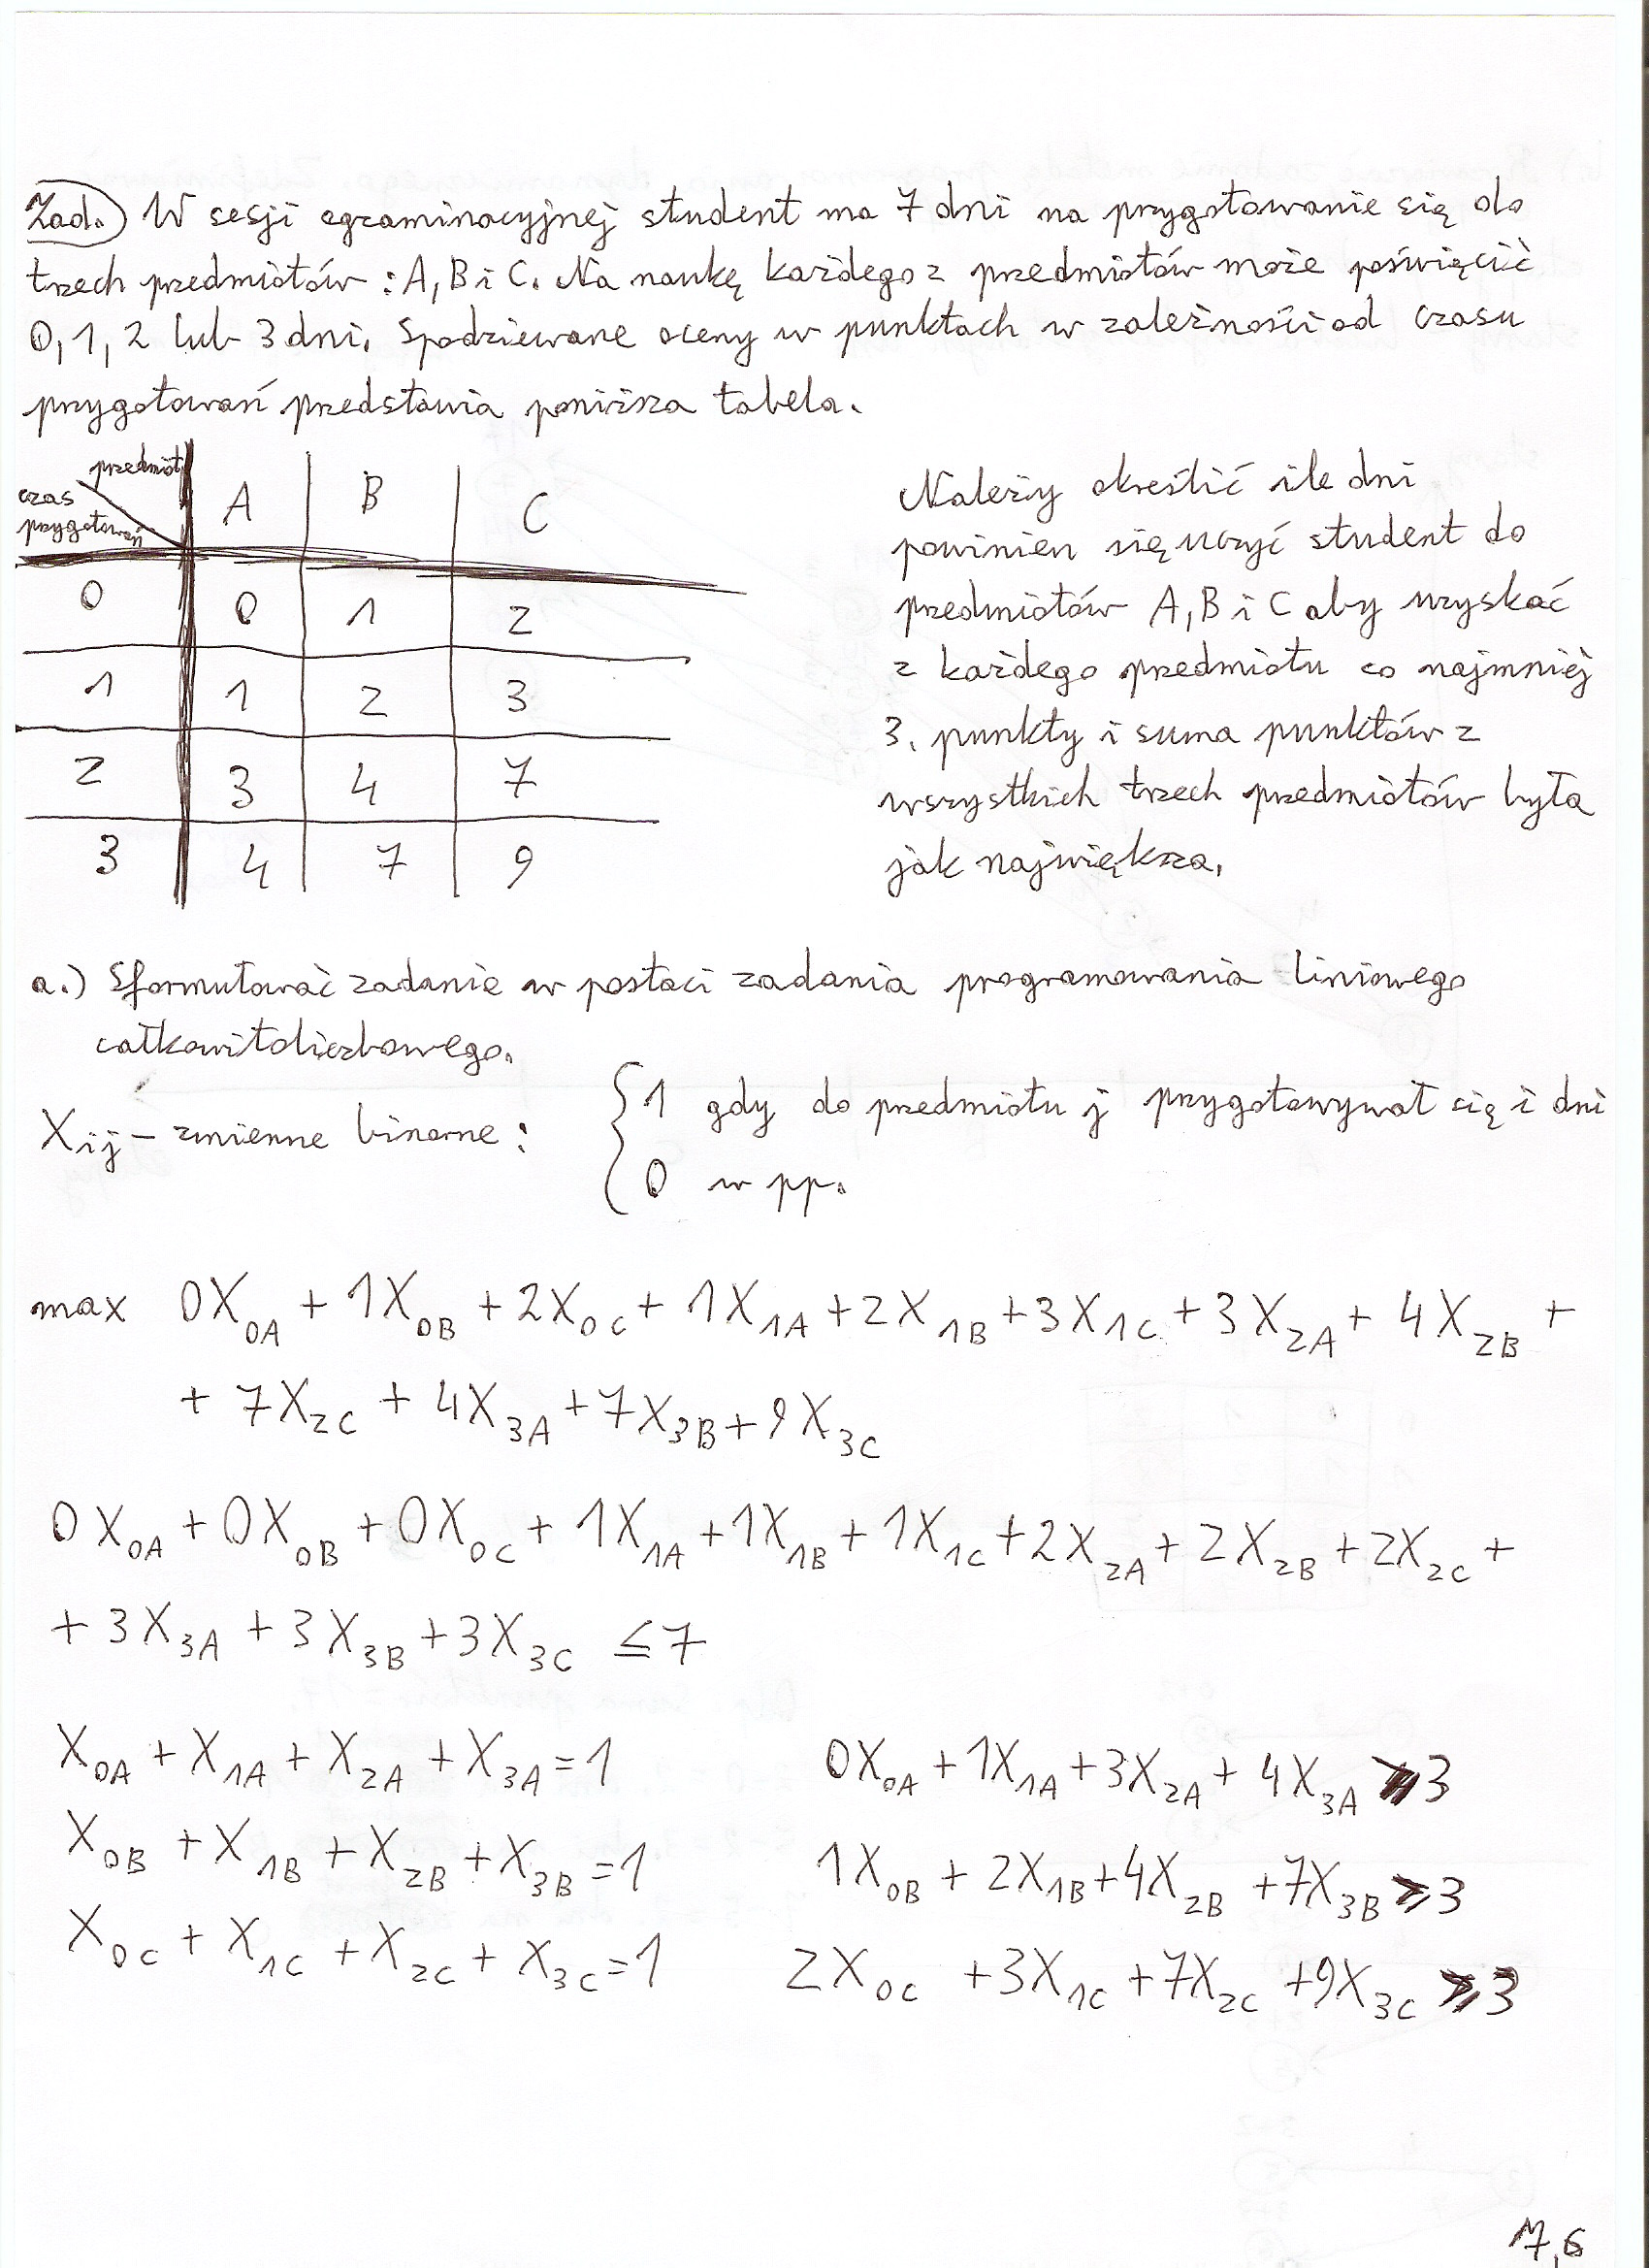 Zad. W sesji egzaminacyjnej student ma 7 dni na przygotowanie się do
trzech przedmiotów: A, B i C. Na naukę każdego z przedmiotów może poświęcić
0, 1, 2 lub 3 dni. Spodziewane oceny w punktach w zależności od czasu
przygotowań przedstawia poniższa tabela.
przedmiot
czas
przygotowań
A B C
0 0 1 2
1 1 2 3
2 3 4 7
3 4 7 9
Należy określić ile dni
powinien się uczyć student do
przedmiotów A, B i C aby uzyskać
z każdego przedmiotu co najmniej
3. punkty i suma punktów z
wszystkich trzech przedmiotów była
jak największa.
a.) Sformułować zadanie w postaci zadania programowania liniowego
całkowitoliczbowego.
Xij – zmienne binarne: { 1 gdy do przedmiotu j przygotowywał się i dni
0 w pp.
max 0X0A + 1X0B + 2X0C + 1X1A + 2X1B + 3X1C + 3X2A + 4X2B +
+ 7X2C + 4X3A + 7X3B + 9X3C
0X0A + 0X0B + 0X0C + 1X1A + 1X1B + 1X1C + 2X2A + 2X2B + 2X2C +
+ 3X3A + 3X3B + 3X3C ≤ 7
X0A + X1A + X2A + X3A = 1
X0B + X1B + X2B + X3B = 1
X0C + X1C + X2C + X3C = 1
0X0A + 1X1A + 3X2A + 4X3A ≥ 3
1X0B + 2X1B + 4X2B + 7X3B ≥ 3
2X0C + 3X1C + 7X2C + 9X3C ≥ 3